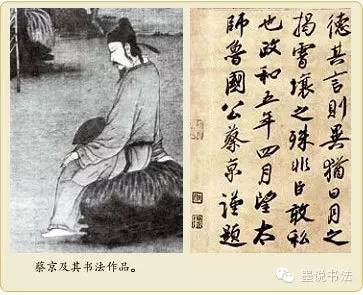 德其言則異猶日月之
揭霄壤之殊非臣敢私
也政和五年四月望太
師魯國公蔡京謹題
蔡京及其书法作品。
墨说书法